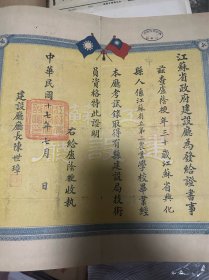 江蘇省政府建設廳為發給證書事
茲查盧蔭槐年三十歲江蘇省興化
縣人係江蘇省立第一農業學校畢業經
本廳考試錄取得有縣建設局技術
員資格特此證明
右給盧蔭槐收執
中華民國十七年七月 日
建設廳廳長陳世璋